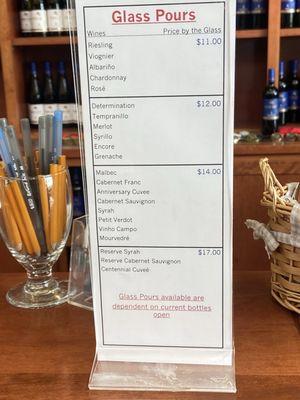 Glass Pours
Wines Price by the Glass
Riesling $11.00
Viognier
Albariño
Chardonnay
Rosé
Determination $12.00
Tempranillo
Merlot
Syrillo
Encore
Grenache
Malbec $14.00
Cabernet Franc
Anniversary Cuvee
Cabernet Sauvignon
Syrah
Petit Verdot
Vinho Campo
Mourvedré
Reserve Syrah $17.00
Reserve Cabernet Sauvignon
Centennial Cuveé
Glass Pours available are
dependent on current bottles
open